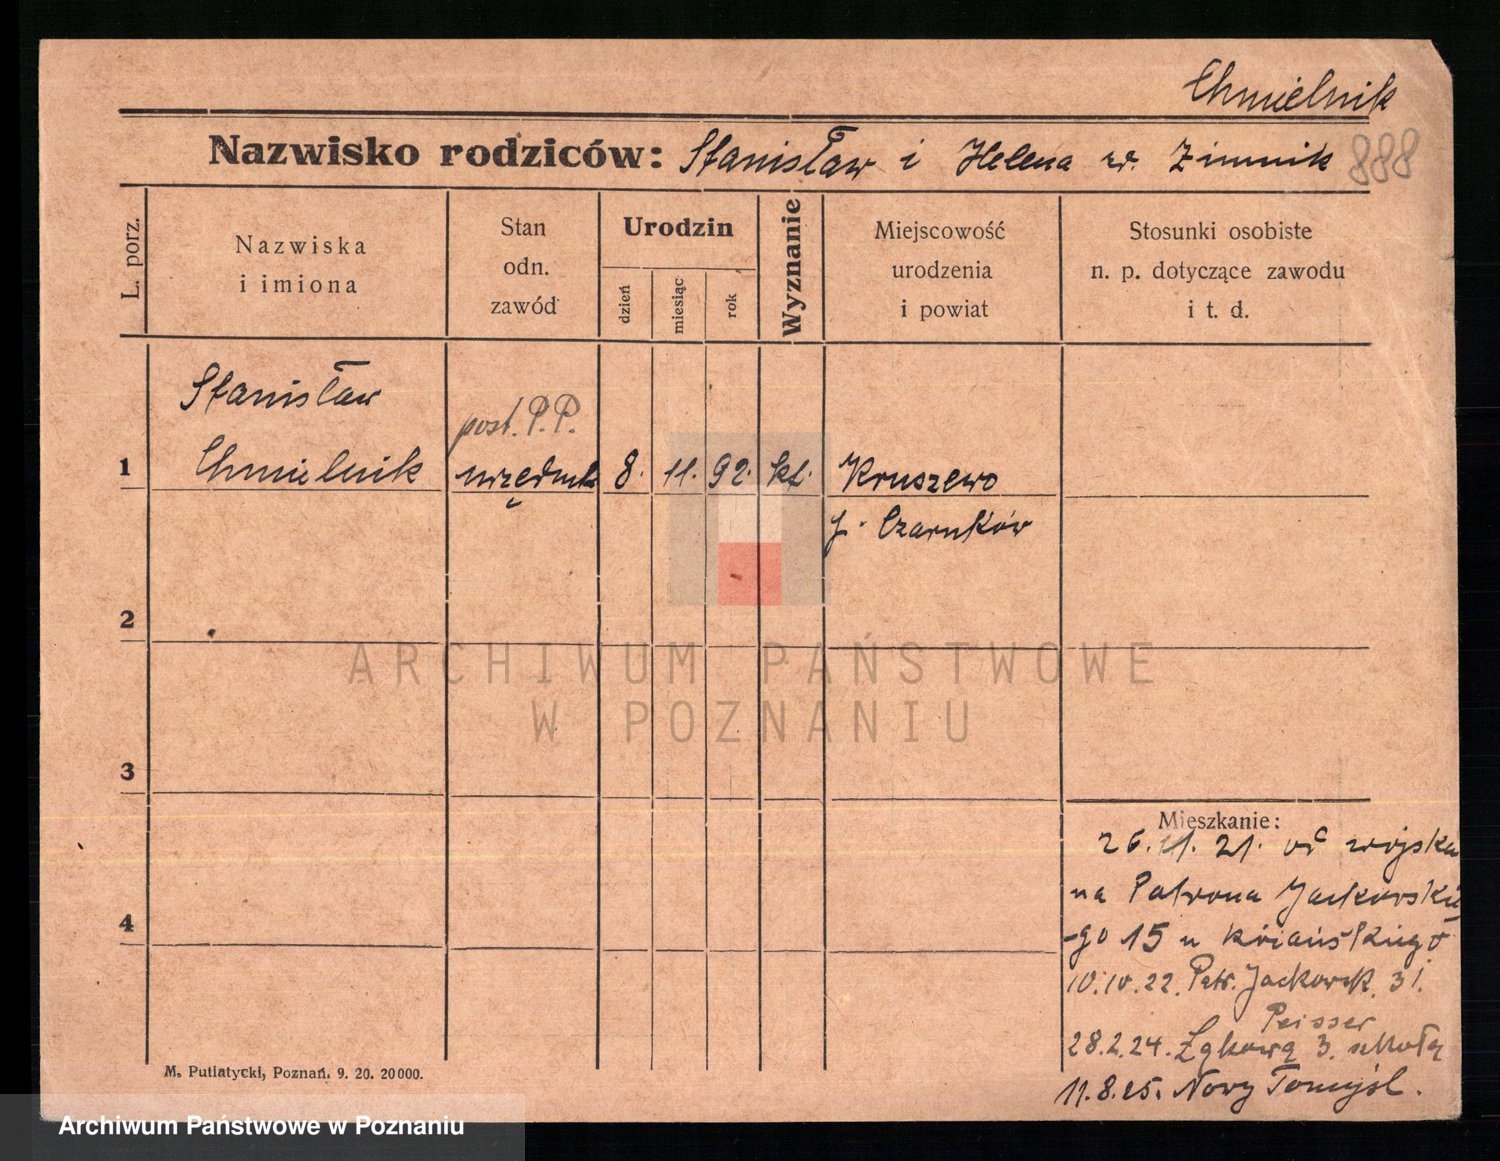 Chmielnik
Nazwisko rodziców: Stanisław i Helena z d. Zimnik 888
L. porz.
Nazwiska
i imiona
Stan
odn.
zawód
Urodzin
dzień
miesiąc
rok
Wyznanie
Miejscowość
urodzenia
i powiat
Stosunki osobiste
n. p. dotyczące zawodu
i t. d.
Stanisław
post. P.P.
1 Chmielnik urzędnik 8. 11. 92. kt. Kruszewo
p. Czarnków
2
ARCHIWUM PAŃSTWOWE
W POZNANIU
3
Mieszkanie:
26. 11. 21. od wojska
na Patrona Jackowskie
4
-go 15 u
10.10.22. Patr. Jackowsk. 31.
Peisser
28.2.24. Łąkowa 3.
11.8.25. Nowy Tomyśl.
M. Putiatycki, Poznań. 9. 20. 20 000.
Archiwum Państwowe w Poznaniu